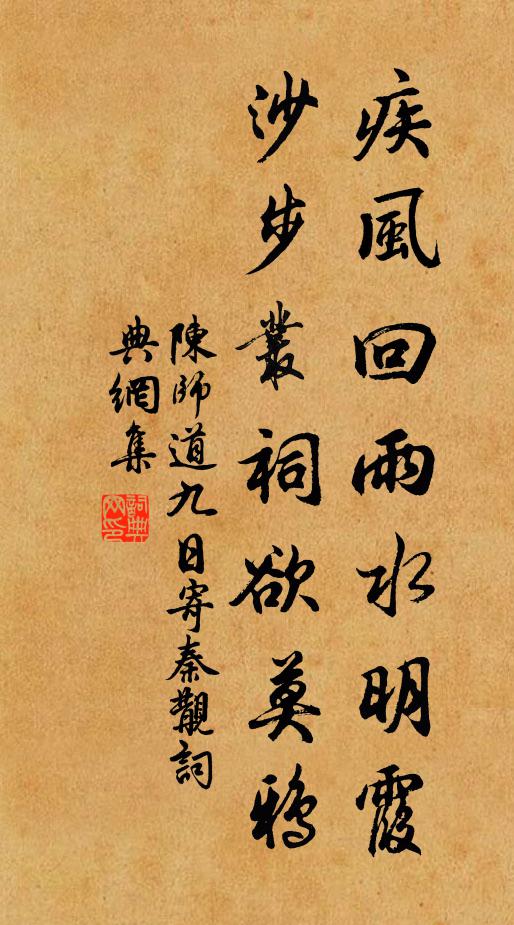 疾風回雨水明霞
沙步叢祠欲莫鴉
陳師道九日寄秦觀詞
典網集
詞典
网印